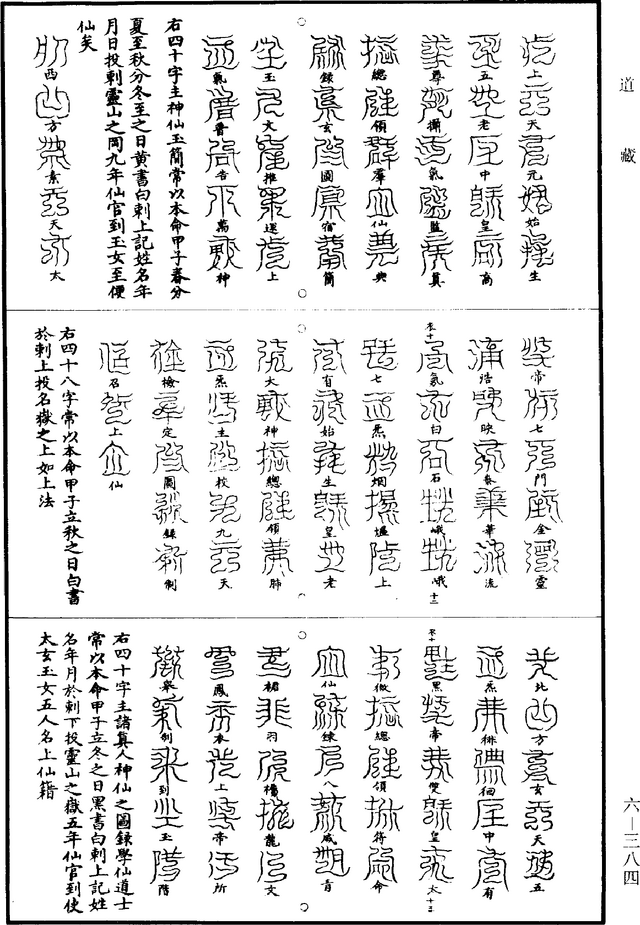 道藏
六—三八四
上天元始生
五老中皇高
尊攝氣監真
總領羣仙典
錄玄圖宿簡
玉文推運上
氣普告萬神
右四十字主神仙玉簡常以本命甲子春分
夏至秋分冬至之日黃書白刺上記姓名年
月日投刺靈山之岡九年仙官到玉女至便
仙矣
西方素天太
帝七門金靈
浩映素華流
氣白石峨峨 十二
七炁烟熅上
有始生皇老
大神總領肺
炁主校九天
檢定圖錄制
召上仙
右四十八字常以本命甲子立秋之日白書
於刺上投名嶽之上如上法
北方玄天五
炁徘徊中有
黑帝雙皇太 十三
微總領符命
仙錄八威青
裙羽襠龍文
鳳衣上帝所
舉制到玉階
右四十字主諸真人神仙之圖錄學仙道士
常以本命甲子立冬之日黑書白刺上記姓
名年月於刺下投靈山之嶽五年仙官到使
太玄玉女五人名上仙籍